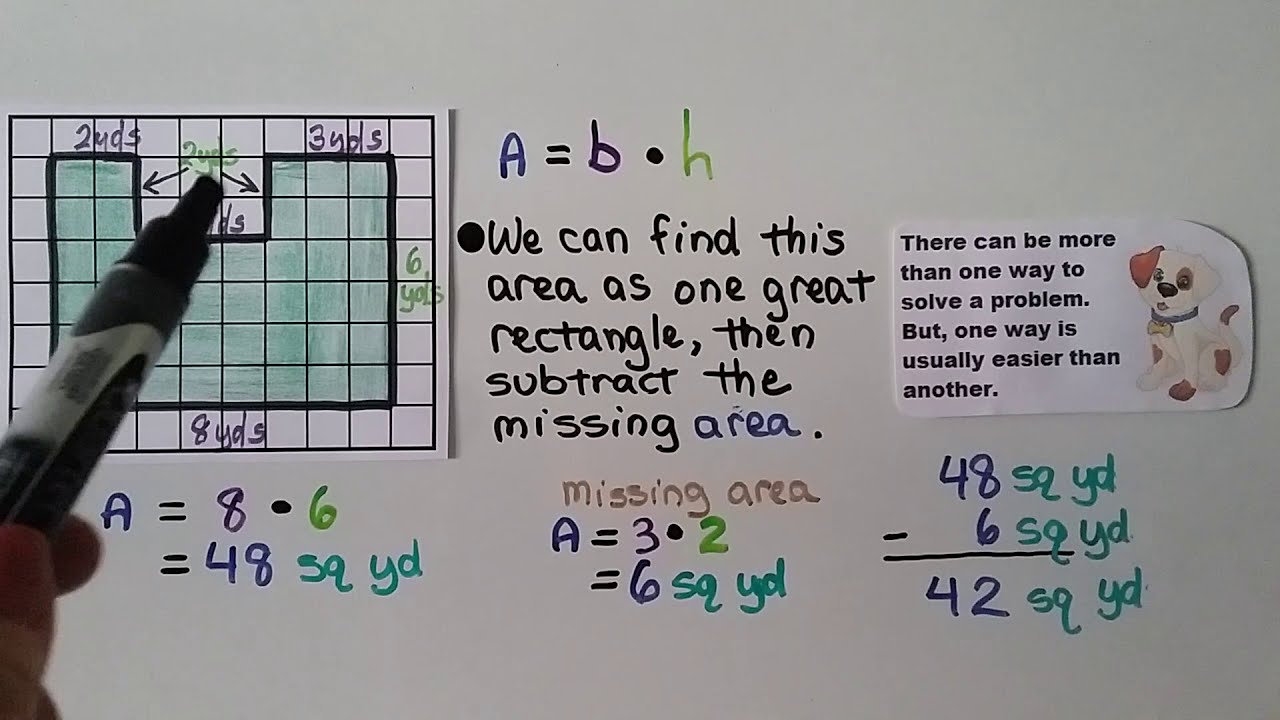 2yds
3yds
2yds
6
yds
8yds
A = b • h
• We can find this
area as one great
rectangle, then
subtract the
missing area.
There can be more
than one way to
solve a problem.
But, one way is
usually easier than
another.
A = 8 • 6
= 48 sq yd
missing area
A = 3 • 2
= 6 sq yd
48 sq yd
- 6 sq yd
42 sq yd